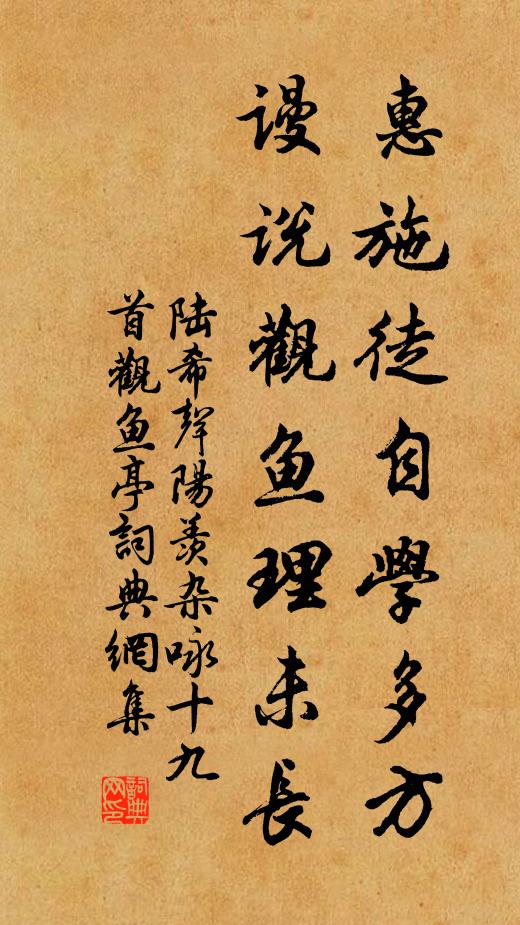 惠施徒自學多方
谩说觀鱼理未長
陆希聲陽羨杂咏十九
首觀鱼亭詞典網集
詞典
网印